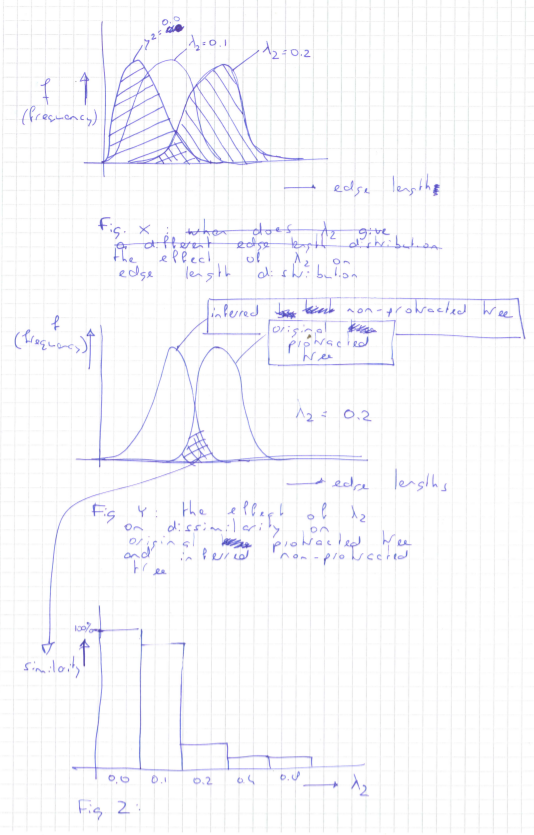 0.0
γ2 =
λ2 = 0.1
λ2 = 0.2
f
(frequency)
edge length
Fig. X : when does λ2 give
a different edge length distribution
the effect of λ2 on
edge length distribution
f
(frequency)
inferred non-protracted tree
original
protracted
tree
λ2 = 0.2
edge lengths
Fig Y: the effect of λ2
on dissimilarity on
original protracted tree
and inferred non-protracted
tree
100%
similarity
0.0 0.1 0.2 0.4
λ2
Fig Z: